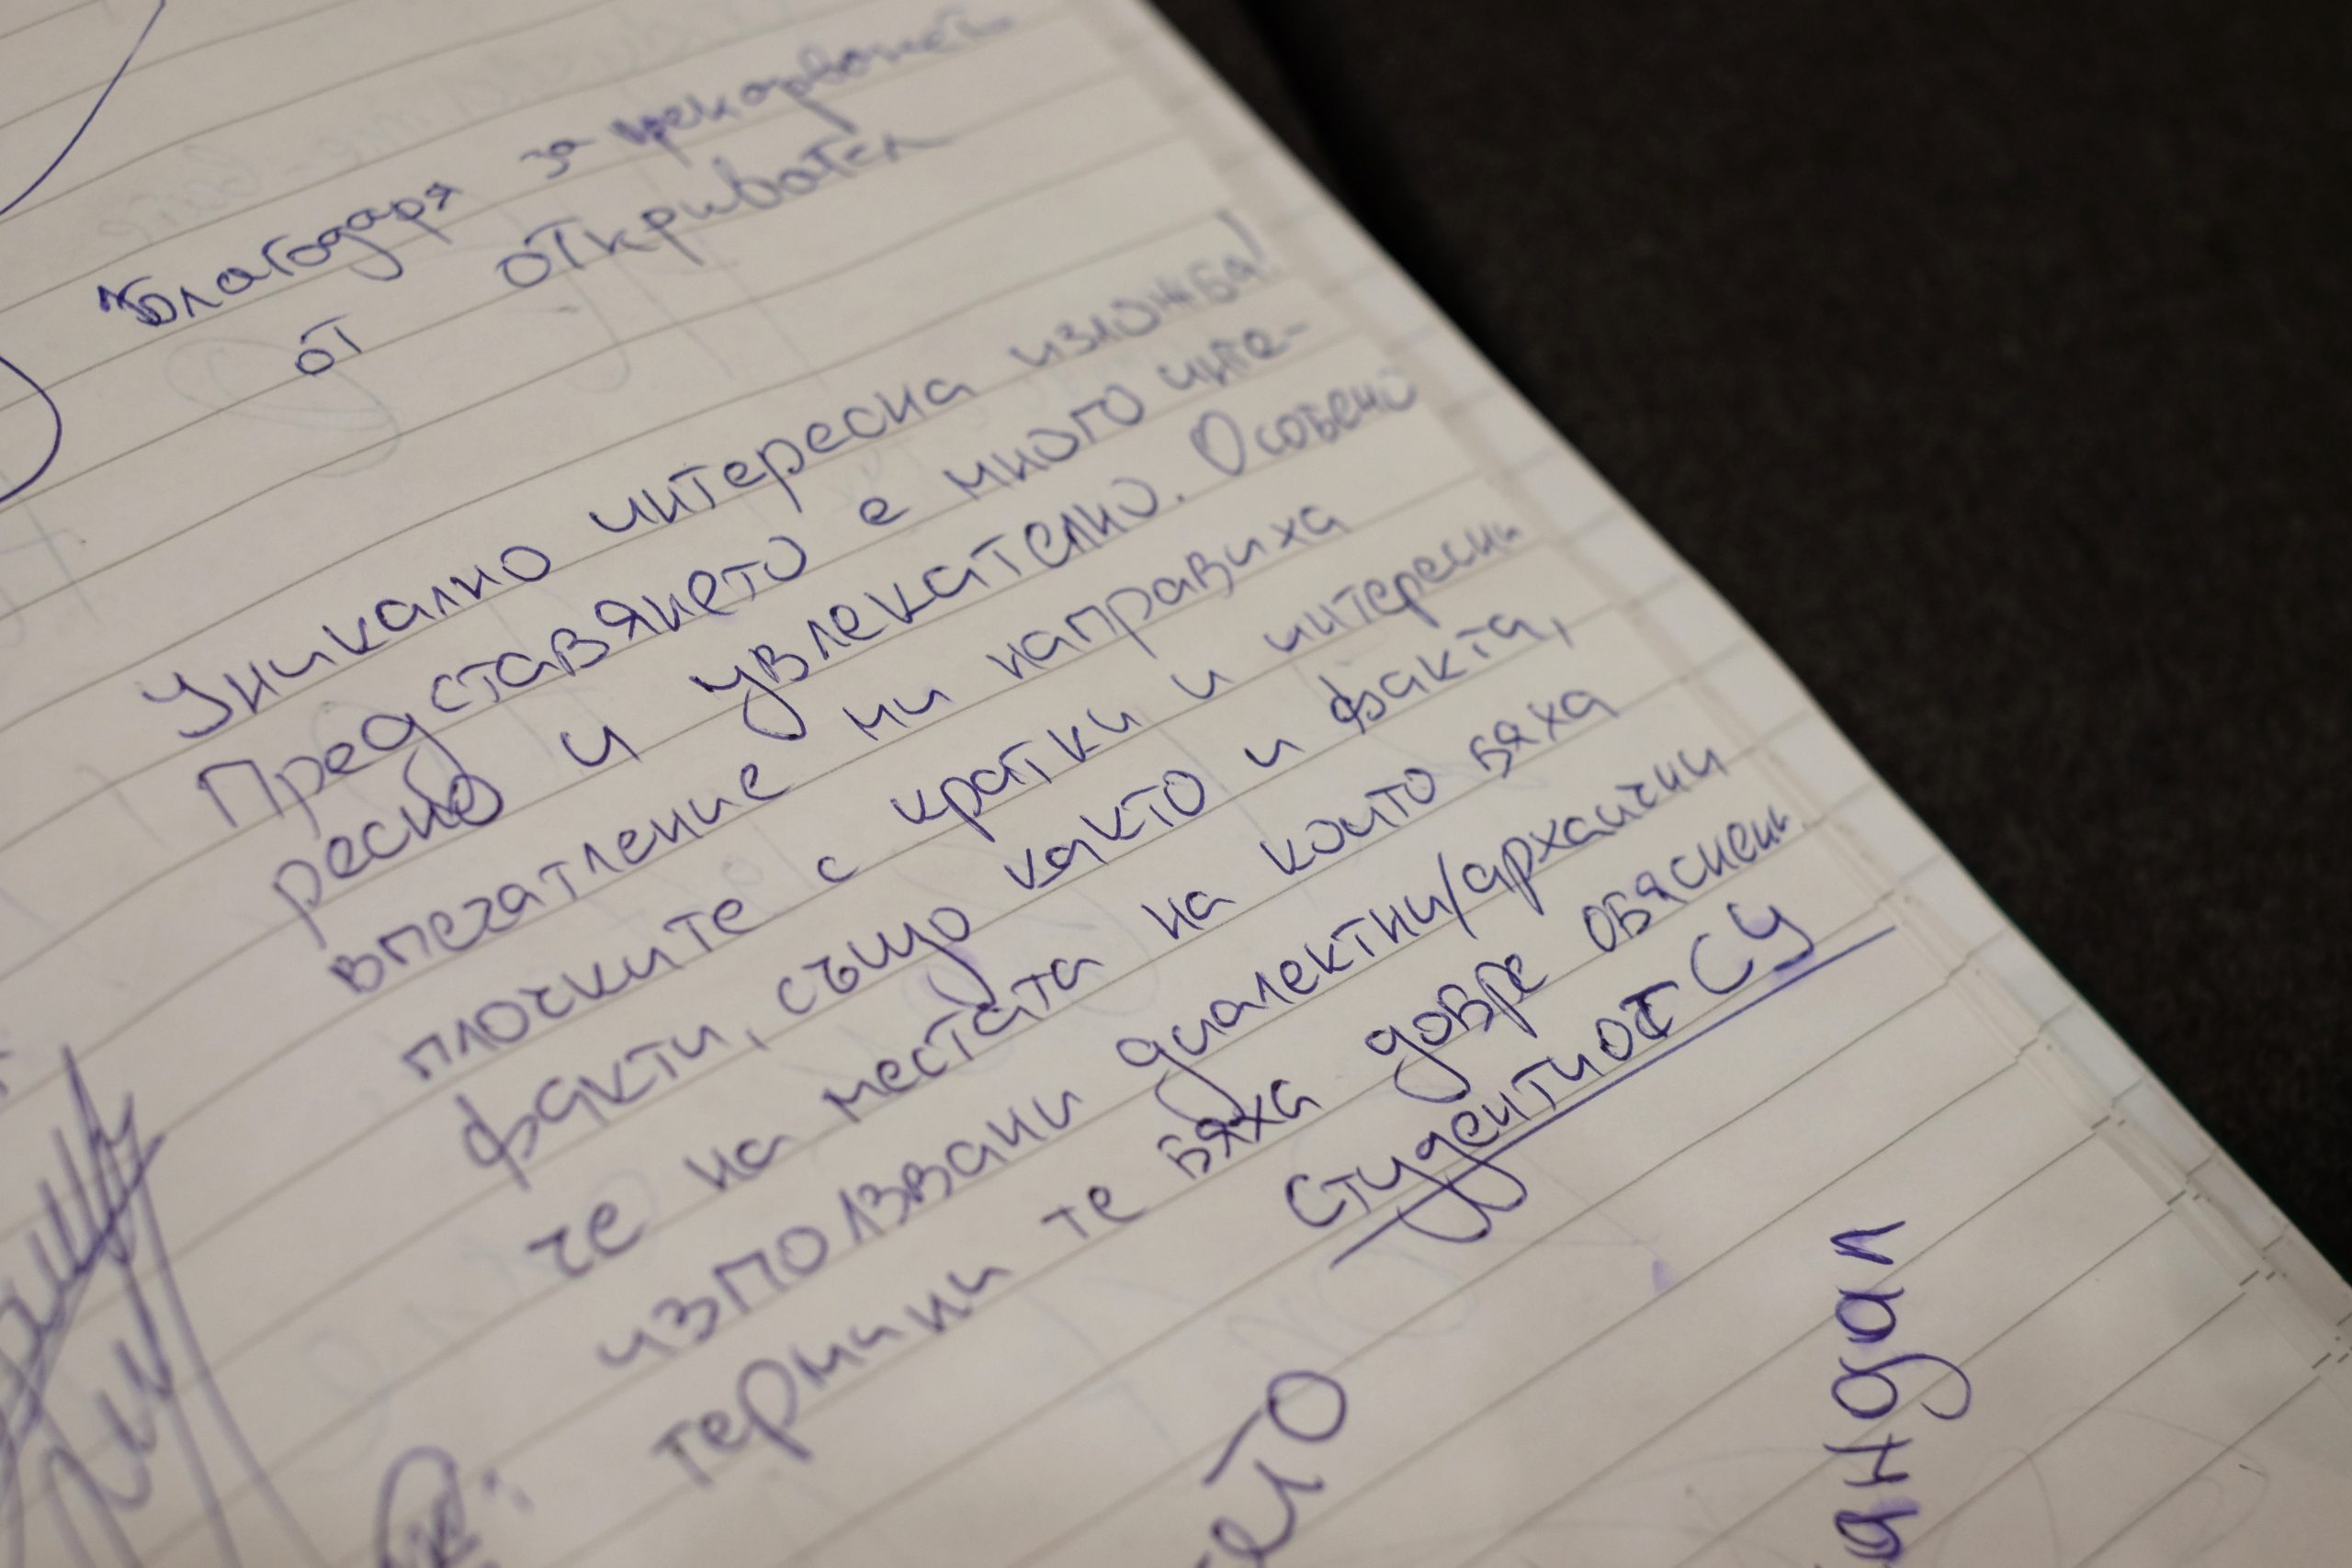 Благодаря за прекарването
от откривател
Уникално интересна изложба!
Представянето е много инте-
ресно и увлекателно. Особено
впечатление ми направиха
плочките с кратки и интересни
факти, също както и факта,
че на местата на които бяха
използвани диалектни/архаични
термини те бяха добре обяснени.
Студенти от СУ